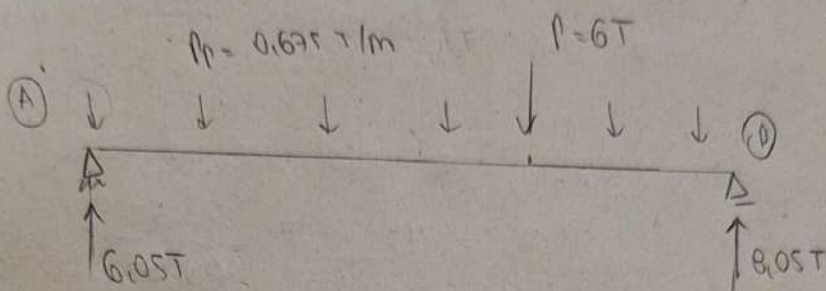 Pp = 0,675 T/m
P = 6T
A
D
6,05T
8,05T